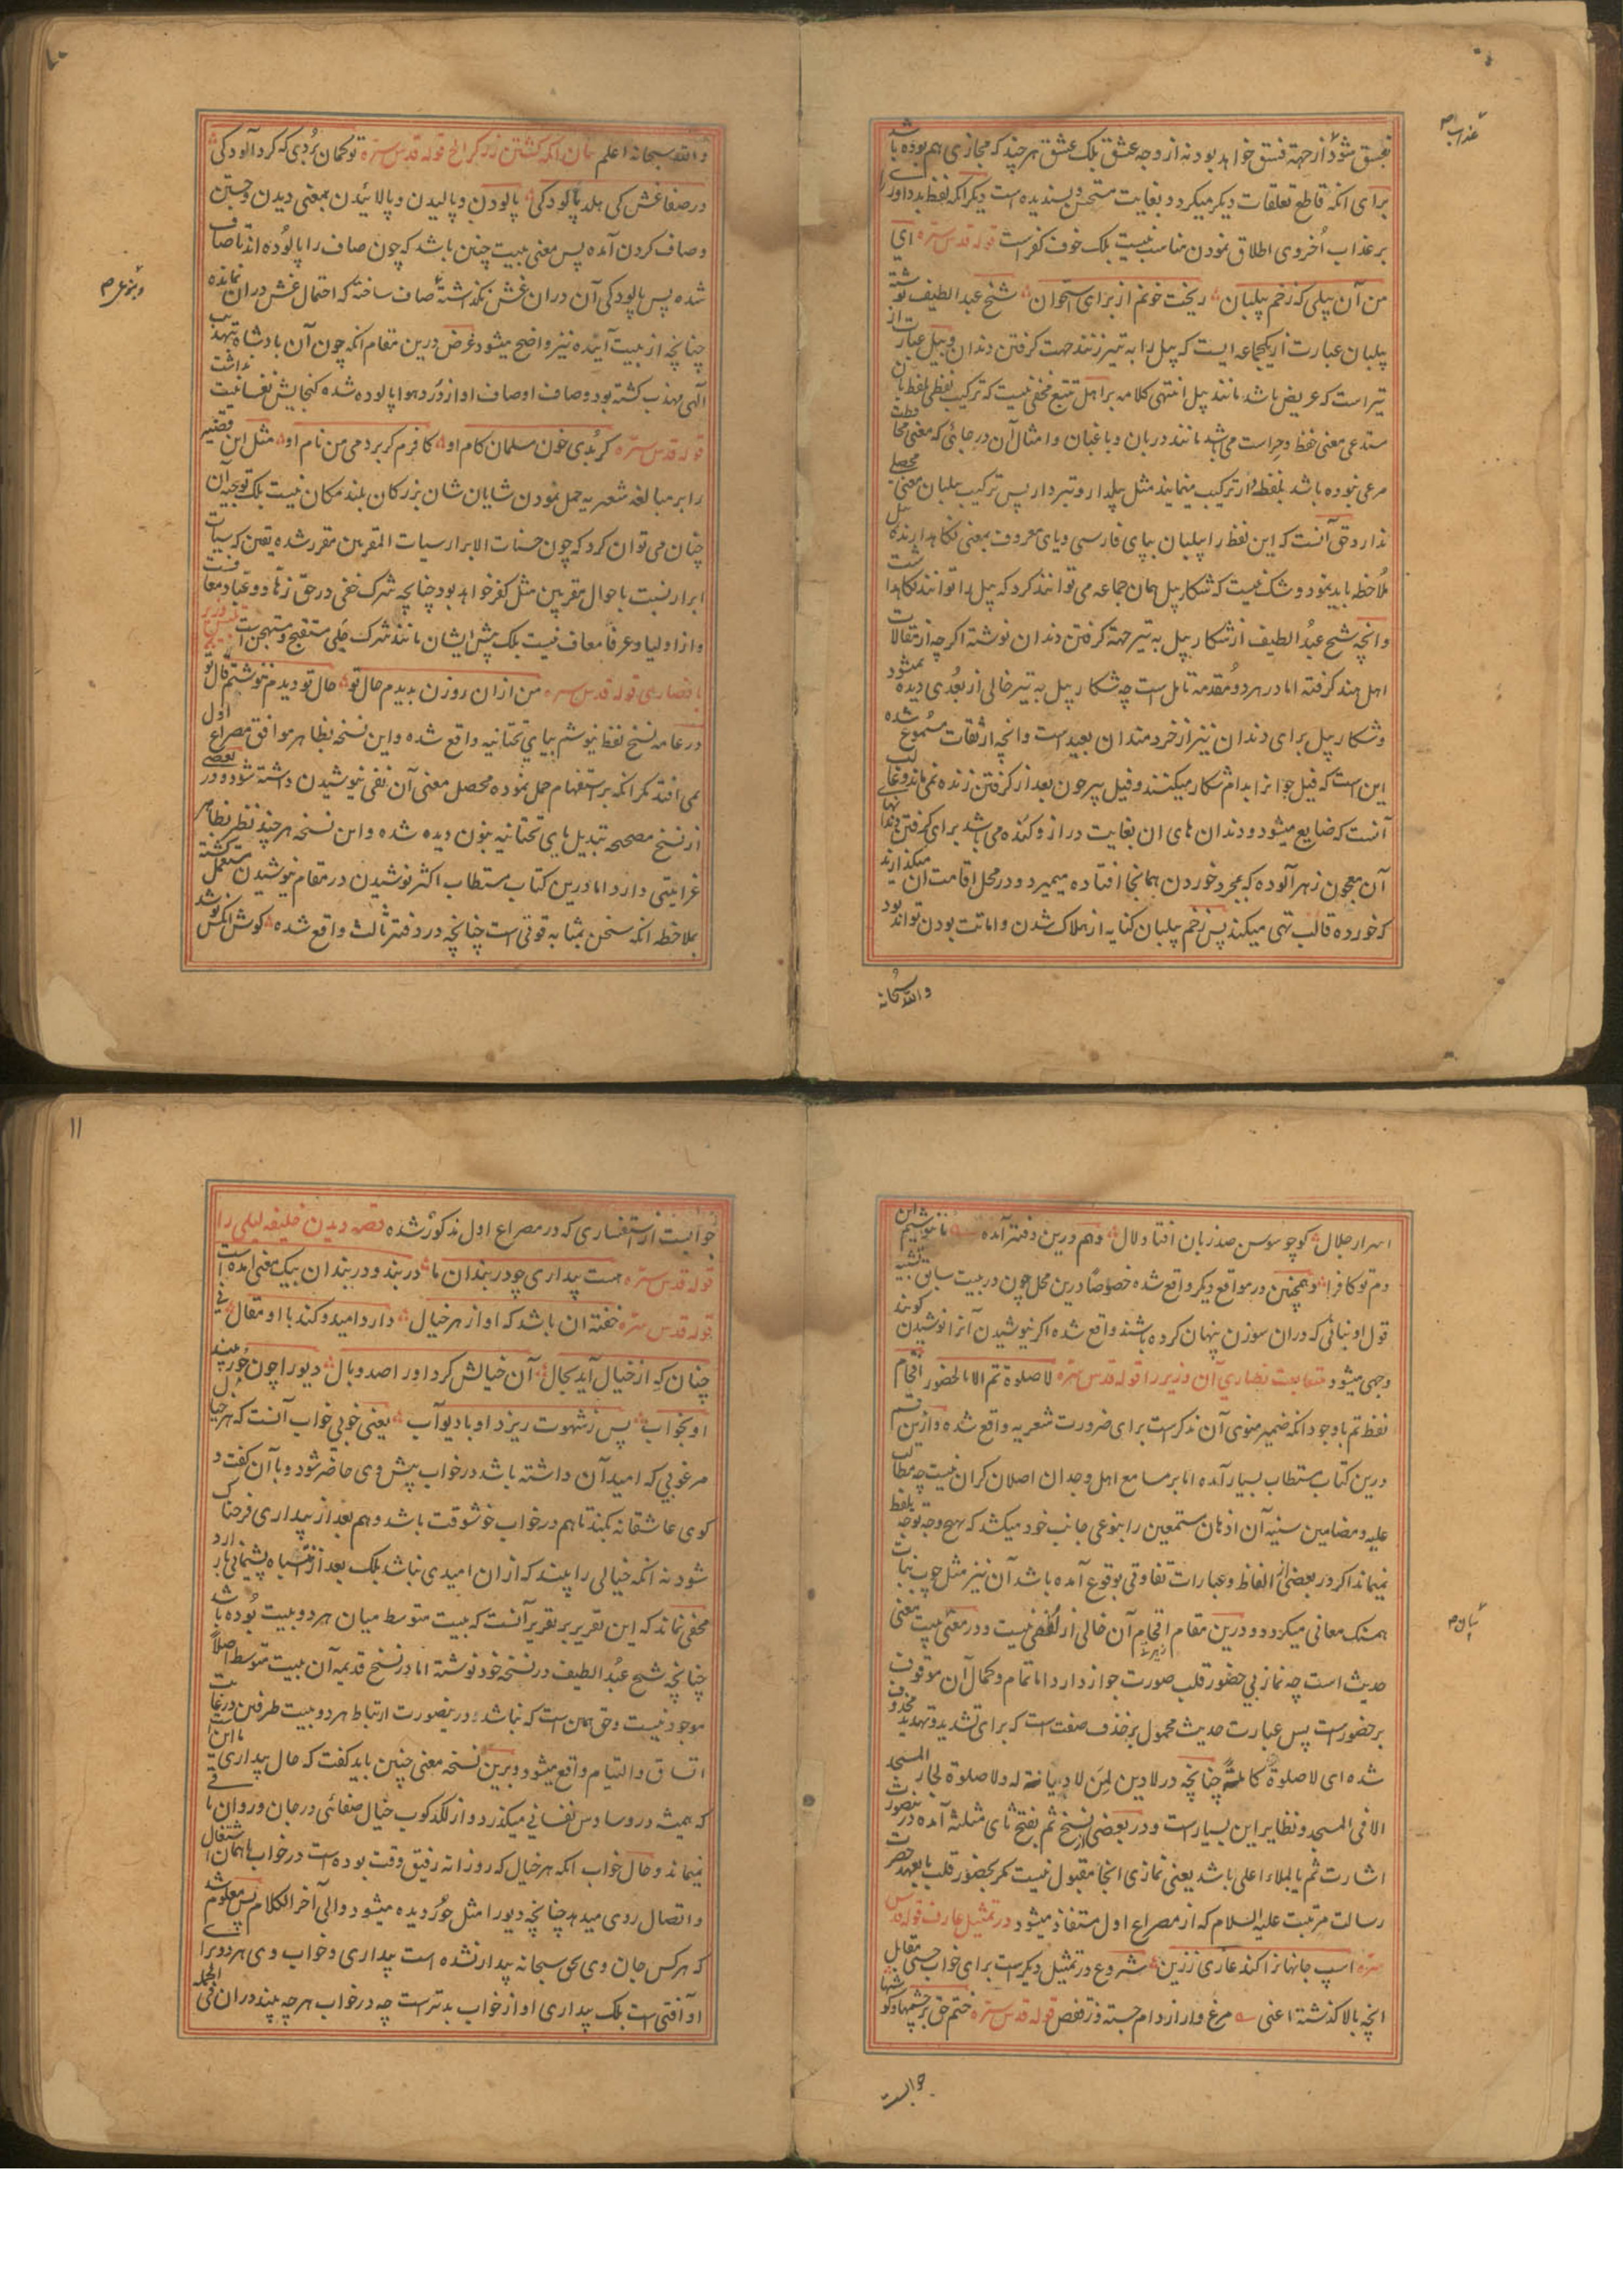 بفسق شود از جهة فسق خواهد بود نه از وجه عشق بلک عشق هر چند که مجازی هم بوده باشد
برای انکه قاطع تعلقات دیکر میکردد بغایت مستحسن و پسندیده است دیکر انکه لفظ بد داوری
بر عذاب اخروی اطلاق نمودن مناسب نیست بلک خوف کفر است قوله قدس سره ای
من آن پیلی که زخم پیلبان ریخت خونم از برای استخوان شیخ عبد الطیف نوشته
پیلبان عبارت از یکجماعه ایست که پیل را به تیر زنند جهت کرفتن دندان و بیل عبارت از
تیر است که عریض باشد مانند بیل انتهی کلامه بر اهل تتبع مخفی نیست که ترکیب لفظی بلفظ بان
مستدعی معنی حفظ و حراست می باشد مانند دربان و باغبان و امثال آن در جائی که معنی محافظت
مرعی نبوده باشد بلفظ دار ترکیب مینمایند مثل بیلدار و تبردار پس ترکیب بیلبان معنی محصلی
ندارد حق آنست که این لفظ را پیلبان بپای فارسی و یای معروف بمعنی نکاهدارنده پیل
ملاحظه باید نمود و شک نیست که شکار پیل همان جماعه می توانند کرد که پیل را توانند نکاهداشت
و انچه شیخ عبد الطیف از شکار پیل به تیر جهة کرفتن دندان نوشته اکرچه از مقالات
اهل هند کرفته اما در هر دو مقدمه تامل است چه شکار پیل به تیر خالی از بعدی دیده نمیشود
و شکار پیل برای دندان نیز از خردمندان بعید است و انچه از ثقات مسموع شده
این است که فیل جوانرا بدام شکار میکنند و فیل پیر چون بعد از کرفتن زنده نمی ماند و غالب
آنست که ضایع میشود و دندان های ان بغایت دراز و کنده می باشد برای کرفتن دندانها
آن معجون زهرآلوده که بمجرد خوردن همانجا افتاده میمیرد در محل اقامت ان میکذارند
که خورده قالب تهی میکند پس زخم پیلبان کنایه از هلاک شدن و اماتت بودن تواند بود
والله سبحانه
عذاب
والله سبحانه اعلم بیان انکه کشتن زرکر الخ قوله قدس سره تو کمان بردی که کرد آلودکی
در صفا غش کی هلد پالودکی پالودن و پالیدن و پالائیدن بمعنی دیدن و جستن
و صاف کردن آمده پس معنی بیت چنین باشد که چون صاف را پالوده اند تا صاف
شده پس پالودکی آن دران غش نکذاشته صاف ساخته که احتمال غش دران نمانده
چنانچه از بیت آینده نیز واضح میشود غرض درین مقام انکه چون آن پادشاه بتهذیب
الهی مهذب کشته بود و صاف اوصاف او از درد هوا پالوده شده کنجایش نفسانیت نداشت
قوله قدس سره کر بدی خون مسلمان کام او کافرم کر بردمی من نام او مثل این قضیه
را بر مبالغه شعریه حمل نمودن شایان شان بزرکان بلند مکان نیست بلک توجیه آن
چنان می توان کرد که چون حسنات الابرار سیات المقربین مقرر شده یقین که سیات
ابرار نسبت باحوال مقربین مثل کفر خواهد بود چنانچه شرک خفی در حق زهاد و عباد معافست
و از اولیا و عرفا معاف نیست بلک پیش ایشان مانند شرک جلی مستقبح و مستهجن است
با نصاری قوله قدس سره من ازان روزن بدیدم حال تو حال تو دیدم ننوشم قال تو
در عامه نسخ لفظ نیوشم بیای تحتانیه واقع شده و این نسخه بظاهر موافق مصراع اول
نمی افتد مکر انکه بر استفهام حمل نموده محصل معنی آن نفی نیوشیدن داشته شود و در بعضی
از نسخ مصححه تبدیل یای تحتانیه بنون دیده شده و این نسخه هر چند نظر بظاهر
غرابتی دارد اما درین کتاب مستطاب اکثر نوشیدن در مقام نیوشیدن مستعمل کشته
بملاحظه انکه سخن بمثابه قوتی است چنانچه در دفتر ثالث واقع شده کوش انکس نوشد
اسرار جلال کو چو سوسن صد زبان افتاد و لال و هم درین دفتر آمده تا ننوشیم این
دم تو کافرا و همچنین در مواقع دیکر واقع شده خصوصا درین محل چون در بیت سابق تشبیه
قول او بنانی که دران سوزن پنهان کرده باشند واقع شده اکر نیوشیدن آنرا نوشیدن کویند
وجهی میشود متابعت نصاری آن وزیر را قوله قدس سره لا صلوة تم الا بالحضور اقحام
لفظ تم با وجود انکه ضمیر منوی آن مذکر است برای ضرورت شعریه واقع شده و ازین قسم
درین کتاب مستطاب بسیار آمده اما بر مسامع اهل وجدان اصلا کران نیست چه مطالب
علیه و مضامین سنیه آن اذهان مستمعین را بنوعی جانب خود میکشد که هیچ وجه توجه بلفظ
نمیماند اکر در بعضی از الفاظ و عبارات تفاوتی بوقوع آمده باشد آن نیز مثل چوب نبات
همسنک معانی میکردد و درین مقام اقحام آن خالی از لطفی نیست و در معنی بیت معنی
حدیث است چه نماز بی حضور قلب صورت جواز دارد اما تمام و کمال آن موقوف
بر حضور است پس عبارت حدیث محمول بر حذف صفت است که برای تشدید و تهدید محذوف
شده ای لا صلوة کاملة چنانچه در لا دین لمن لا دیانة له و لا صلوة لجار المسجد
الا فی المسجد و نظایر این بسیار است و در بعضی از نسخ ثم بفتح ثای مثلثه آمده درینصورت
اشارت ثم یا بملاء اعلی باشد یعنی نمازی انجا مقبول نیست مکر بحضور قلب یا بعهد حضرت
رسالت مرتبت علیه السلام که از مصراع اول مستفاد میشود در تمثیل عارف قوله قدس
سره اسپ جانهانرا کند عاری ز زین شروع در تمثیل دیکر است برای خواب حسی مقابل
انچه بالا کذشته اعنی مرغ وار از دام جسته وز قفص قوله قدس سره ختم حق بر چشمها و کوشها
جوابست
جوابست از استفساری که در مصراع اول مذکور شده قصه دیدن خلیفه لیلی را
قوله قدس سره هست بیداری چو دربندان ما دربند و دربندان بیک معنی آمده است
قوله قدس سره خفته ان باشد که او از هر خیال دارد امید و کند با او مقال نی
چنان که از خیال آید بحال آن خیالش کردد او را صد وبال دیو را چون حور بیند
او بخواب پس ز شهوت ریزد او با دیو آب یعنی خوبی خواب آنست که هر خیال
مرغوبی که امید آن داشته باشد در خواب پیش وی حاضر شود و با آن کفت و
کوی عاشقانه بکند تا هم در خواب خوشوقت باشد و هم بعد از بیداری فرحناک
شود نه انکه خیالی را بیند که ازان امیدی نباشد بلک بعد از انتباه پشیمانی بار ارد
مخفی نماند که این تقریر بر تقریر آنست که بیت متوسط میان هر دو بیت بوده باشد
چنانچه شیخ عبد الطیف در نسخه خود نوشته اما در نسخ قدیمه آن بیت متوسط اصلا
موجود نیست و حق همین است که نباشد درینصورت ارتباط هر دو بیت طرفین در غایت
اتساق و التیام واقع میشود و برین نسخه معنی چنین باید کفت که حال بیداری ما این است
که همیشه در وساوس نفسانی میکذرد و از لکدکوب خیال صفائی در جان و روان ما
نمیماند و حال خواب انکه هر خیال که روزانه رفیق وقت بوده است در خواب با همان اشتغال
و اتصال روی میدهد چنانچه دیو را مثل حور دیده میشود و الی آخر الکلام پس معلوم شد
که هر کس جان وی بحق سبحانه بیدار نشده است بیداری و خواب وی هر دو برای
او آفتی است بلک بیداری او از خواب بدتر است چه در خواب هر چه بیند دران فی الجمله
۱۰
۱۱